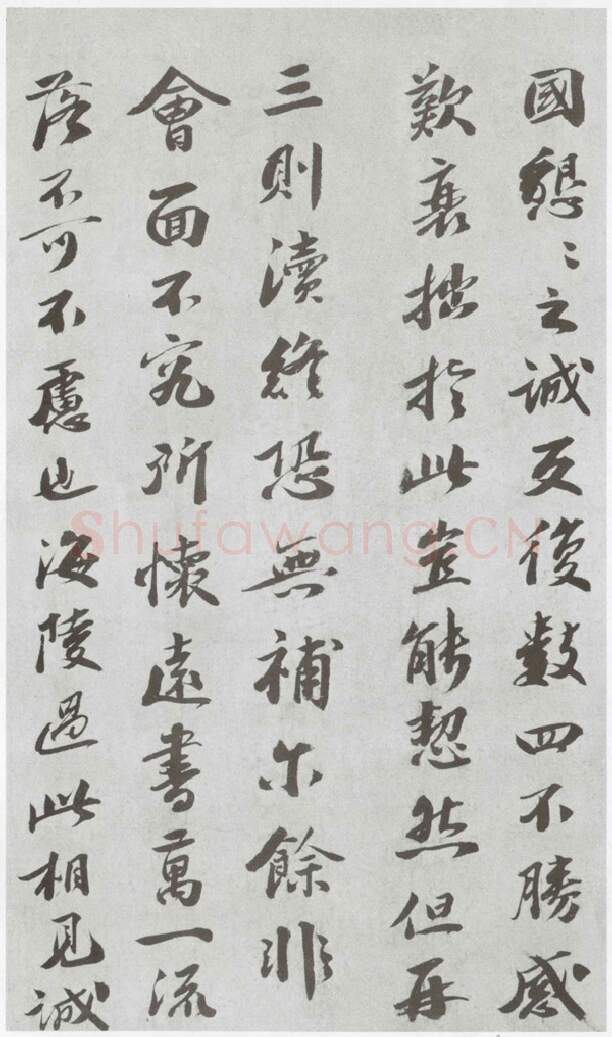 國懇〻之誠反復數四不勝感
歎衰拙於此豈能恝然但再
三則瀆終恐無補尓餘非
會面不究所懷遠書萬一流
落不可不慮也海陵過此相見誠
Shufawang.CN